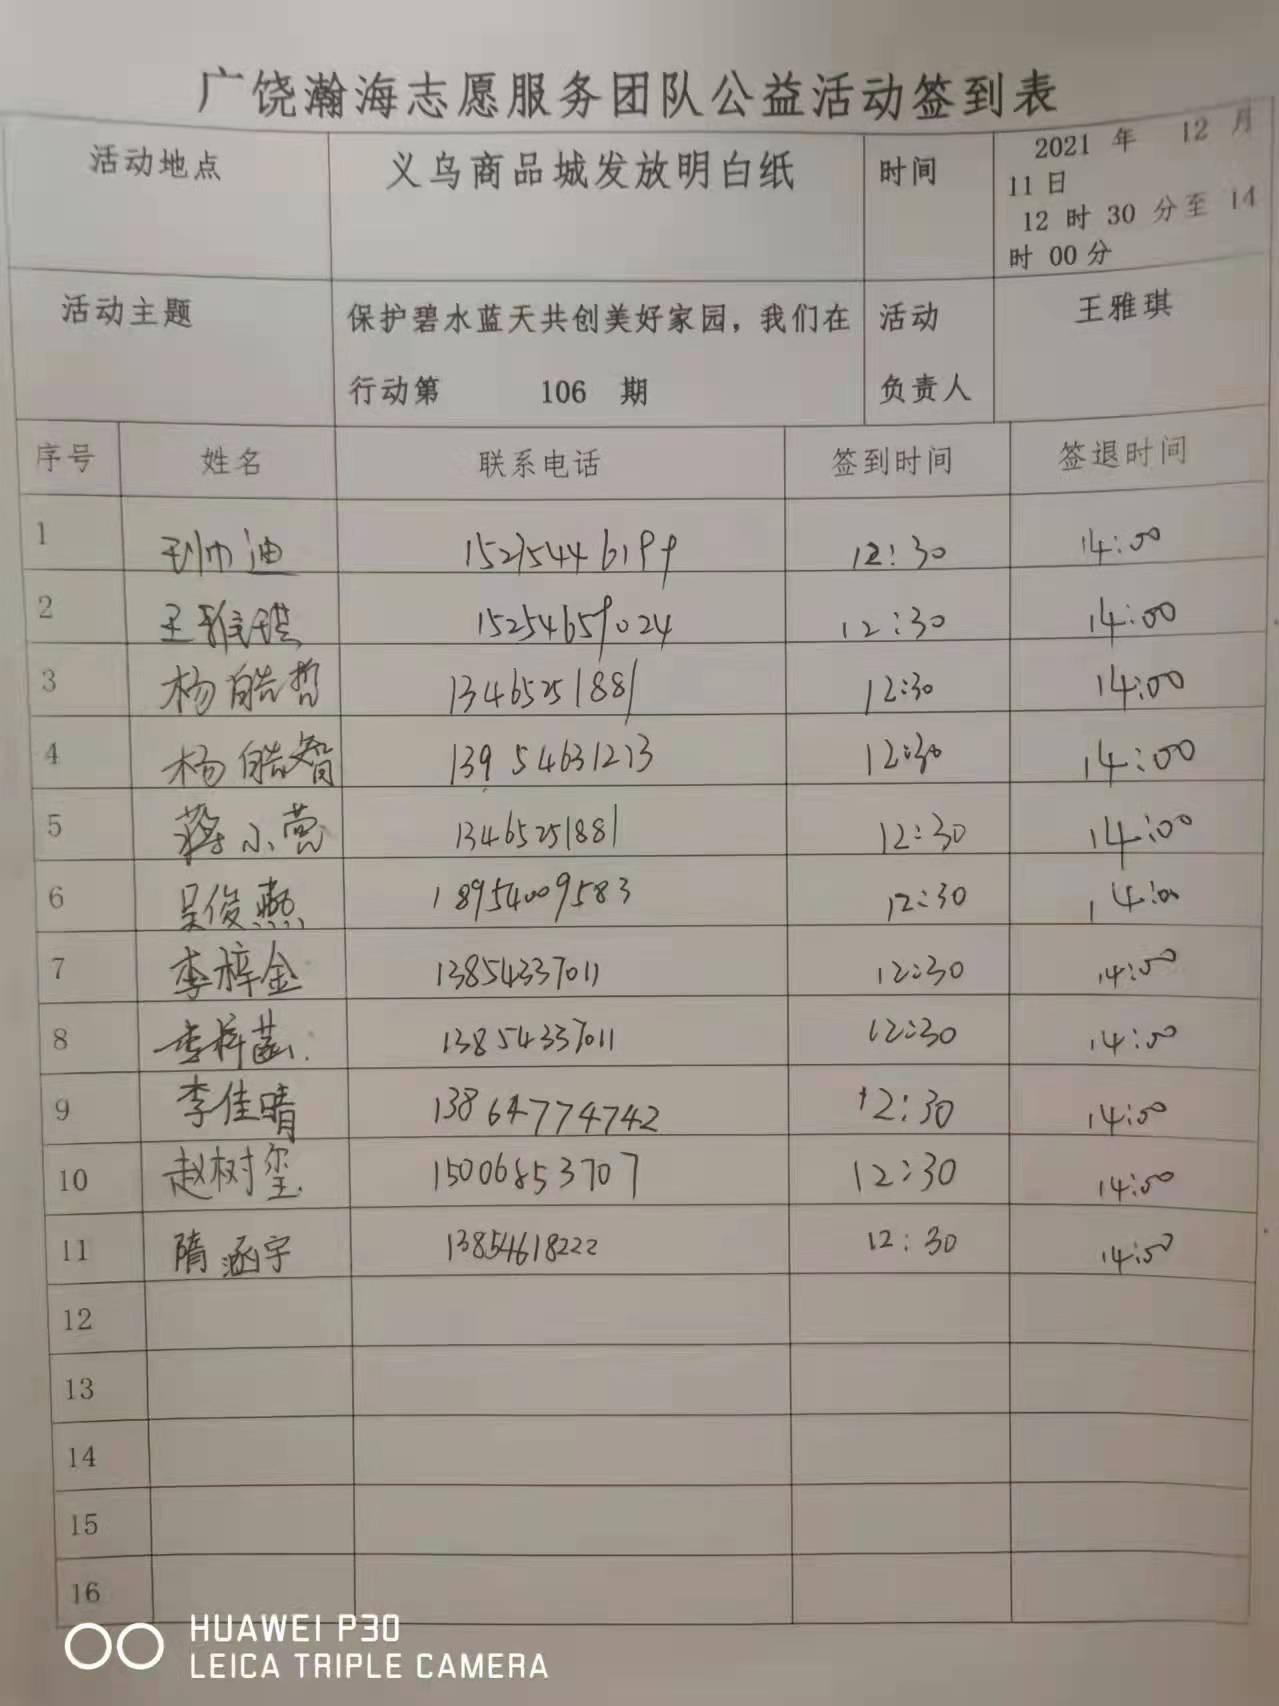 广饶瀚海志愿服务团队公益活动签到表
活动地点 义乌商品城发放明白纸 时间 2021 年 12 月
11日
12 时 30 分至 14
时 00分
活动主题 保护碧水蓝天共创美好家园，我们在 活动 王雅琪
行动第 106 期 负责人
序号 姓名 联系电话 签到时间 签退时间
1 刘帅迪 12:30 14:00
2 王雅琪 15254659024 12:30 14:00
3 杨皓哲 13465251881 12:30 14:00
4 杨皓智 13954631213 12:30 14:00
5 蒋小莺 13465251881 12:30 14:00
6 吴俊燕 18954009583 12:30 14:00
7 李梓金 13854337011 12:30 14:00
8 李梓菡 13854337011 12:30 14:00
9 李佳晴 13864774742 12:30 14:00
10 赵树玺 15006853707 12:30 14:00
11 隋涵宇 13854618222 12:30 14:00
12
13
14
15
16
HUAWEI P30
LEICA TRIPLE CAMERA